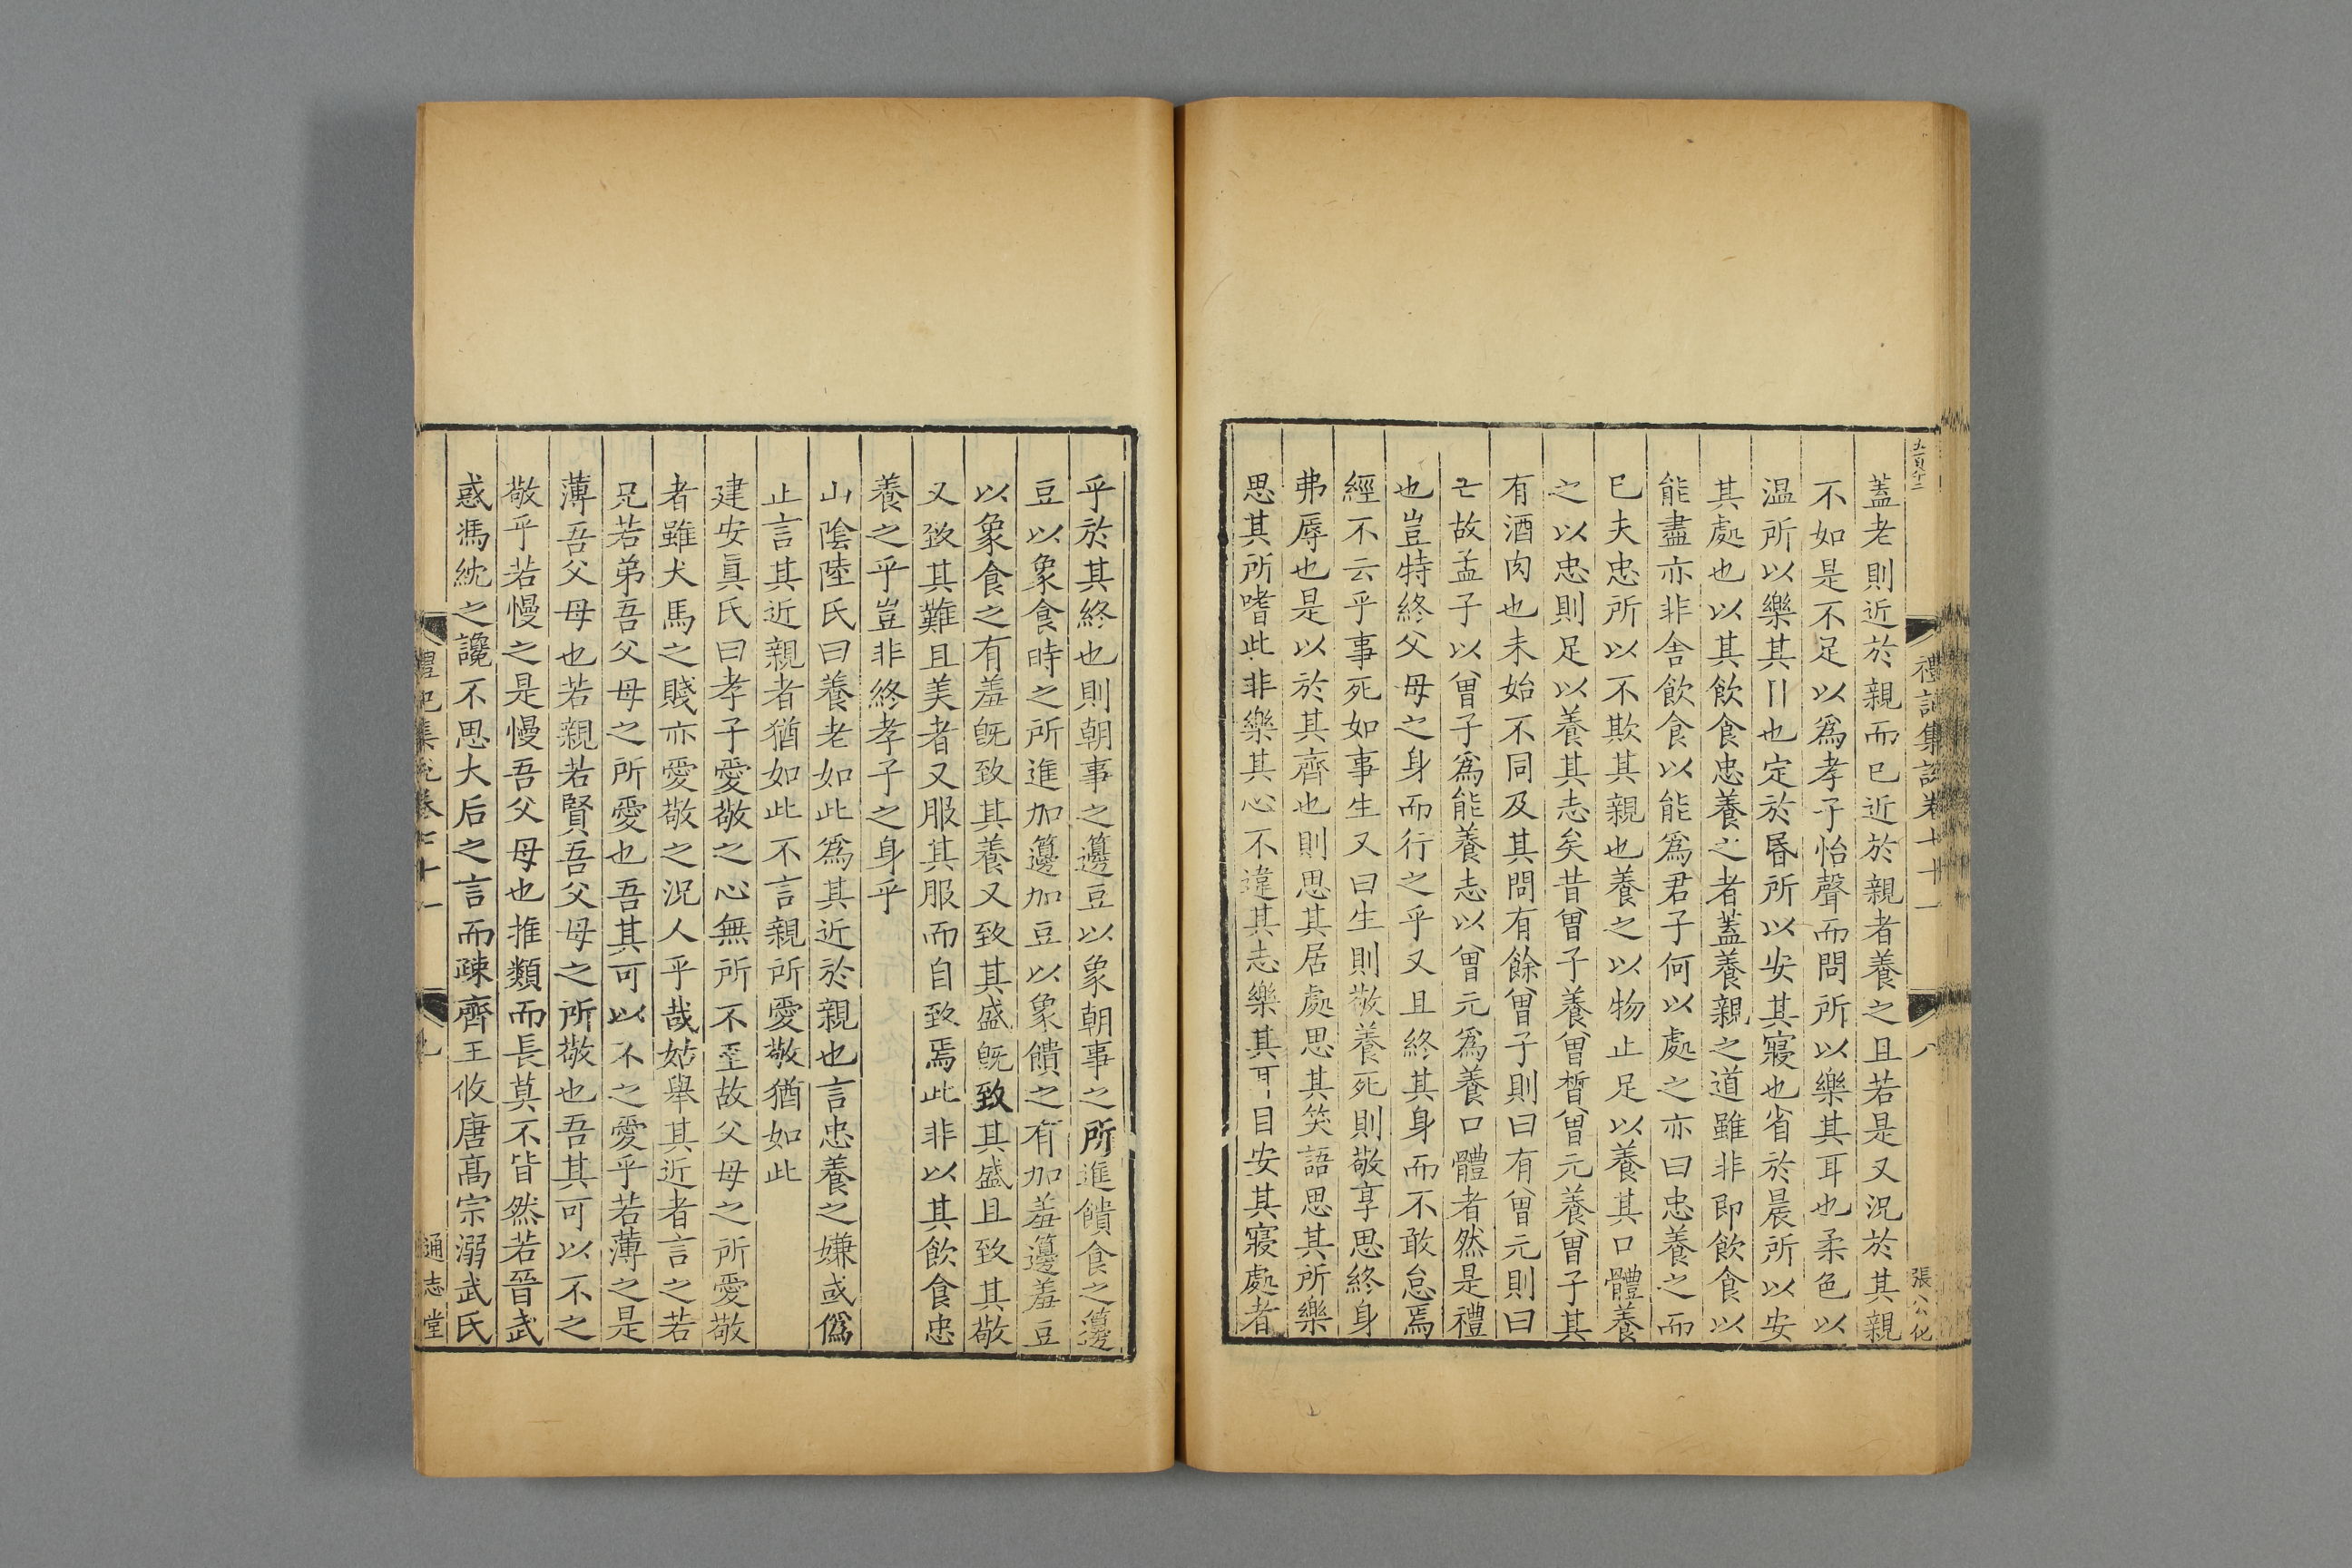 五百十二
禮記集說卷七十一
八
張公化
蓋老則近於親而已近於親者養之且若是又況於其親
不如是不足以爲孝子怡聲而問所以樂其耳也柔色以
温所以樂其目也定於昬所以安其寢也省於晨所以安
其處也以其飲食忠養之者蓋養親之道雖非即飲食以
能盡亦非舎飲食以能爲君子何以處之亦曰忠養之而
已夫忠所以不欺其親也養之以物止足以養其口體養
之以忠則足以養其志矣昔曾子養曾晳曾元養曾子其
有酒肉也未始不同及其問有餘曾子則曰有曾元則曰
亡故孟子以曾子爲能養志以曾元爲養口體者然是禮
也豈特終父母之身而行之乎又且終其身而不敢怠焉
經不云乎事死如事生又曰生則敬養死則敬享思終身
弗辱也是以於其齊也則思其居處思其笑語思其所樂
思其所嗜此非樂其心不違其志樂其耳目安其寢處者
乎於其終也則朝事之籩豆以象朝事之所進饋食之籩
豆以象食時之所進加籩加豆以象饋之有加羞籩羞豆
以象食之有羞旣致其養又致其盛旣致其盛且致其敬
又致其難且美者又服其服而自致焉此非以其飲食忠
養之乎豈非終孝子之身乎
山隂陸氏曰養老如此爲其近於親也言忠養之嫌或僞
止言其近親者猶如此不言親所愛敬猶如此
建安眞氏曰孝子愛敬之心無所不至故父母之所愛敬
者雖犬馬之賤亦愛敬之況人乎哉姑舉其近者言之若
兄若弟吾父母之所愛也吾其可以不之愛乎若薄之是
薄吾父母也若親若賢吾父母之所敬也吾其可以不之
敬乎若慢之是慢吾父母也推類而長莫不皆然若晉武
惑馮紞之讒不思大后之言而疎齊王攸唐髙宗溺武氏
禮記集說卷七十一
九
通志堂